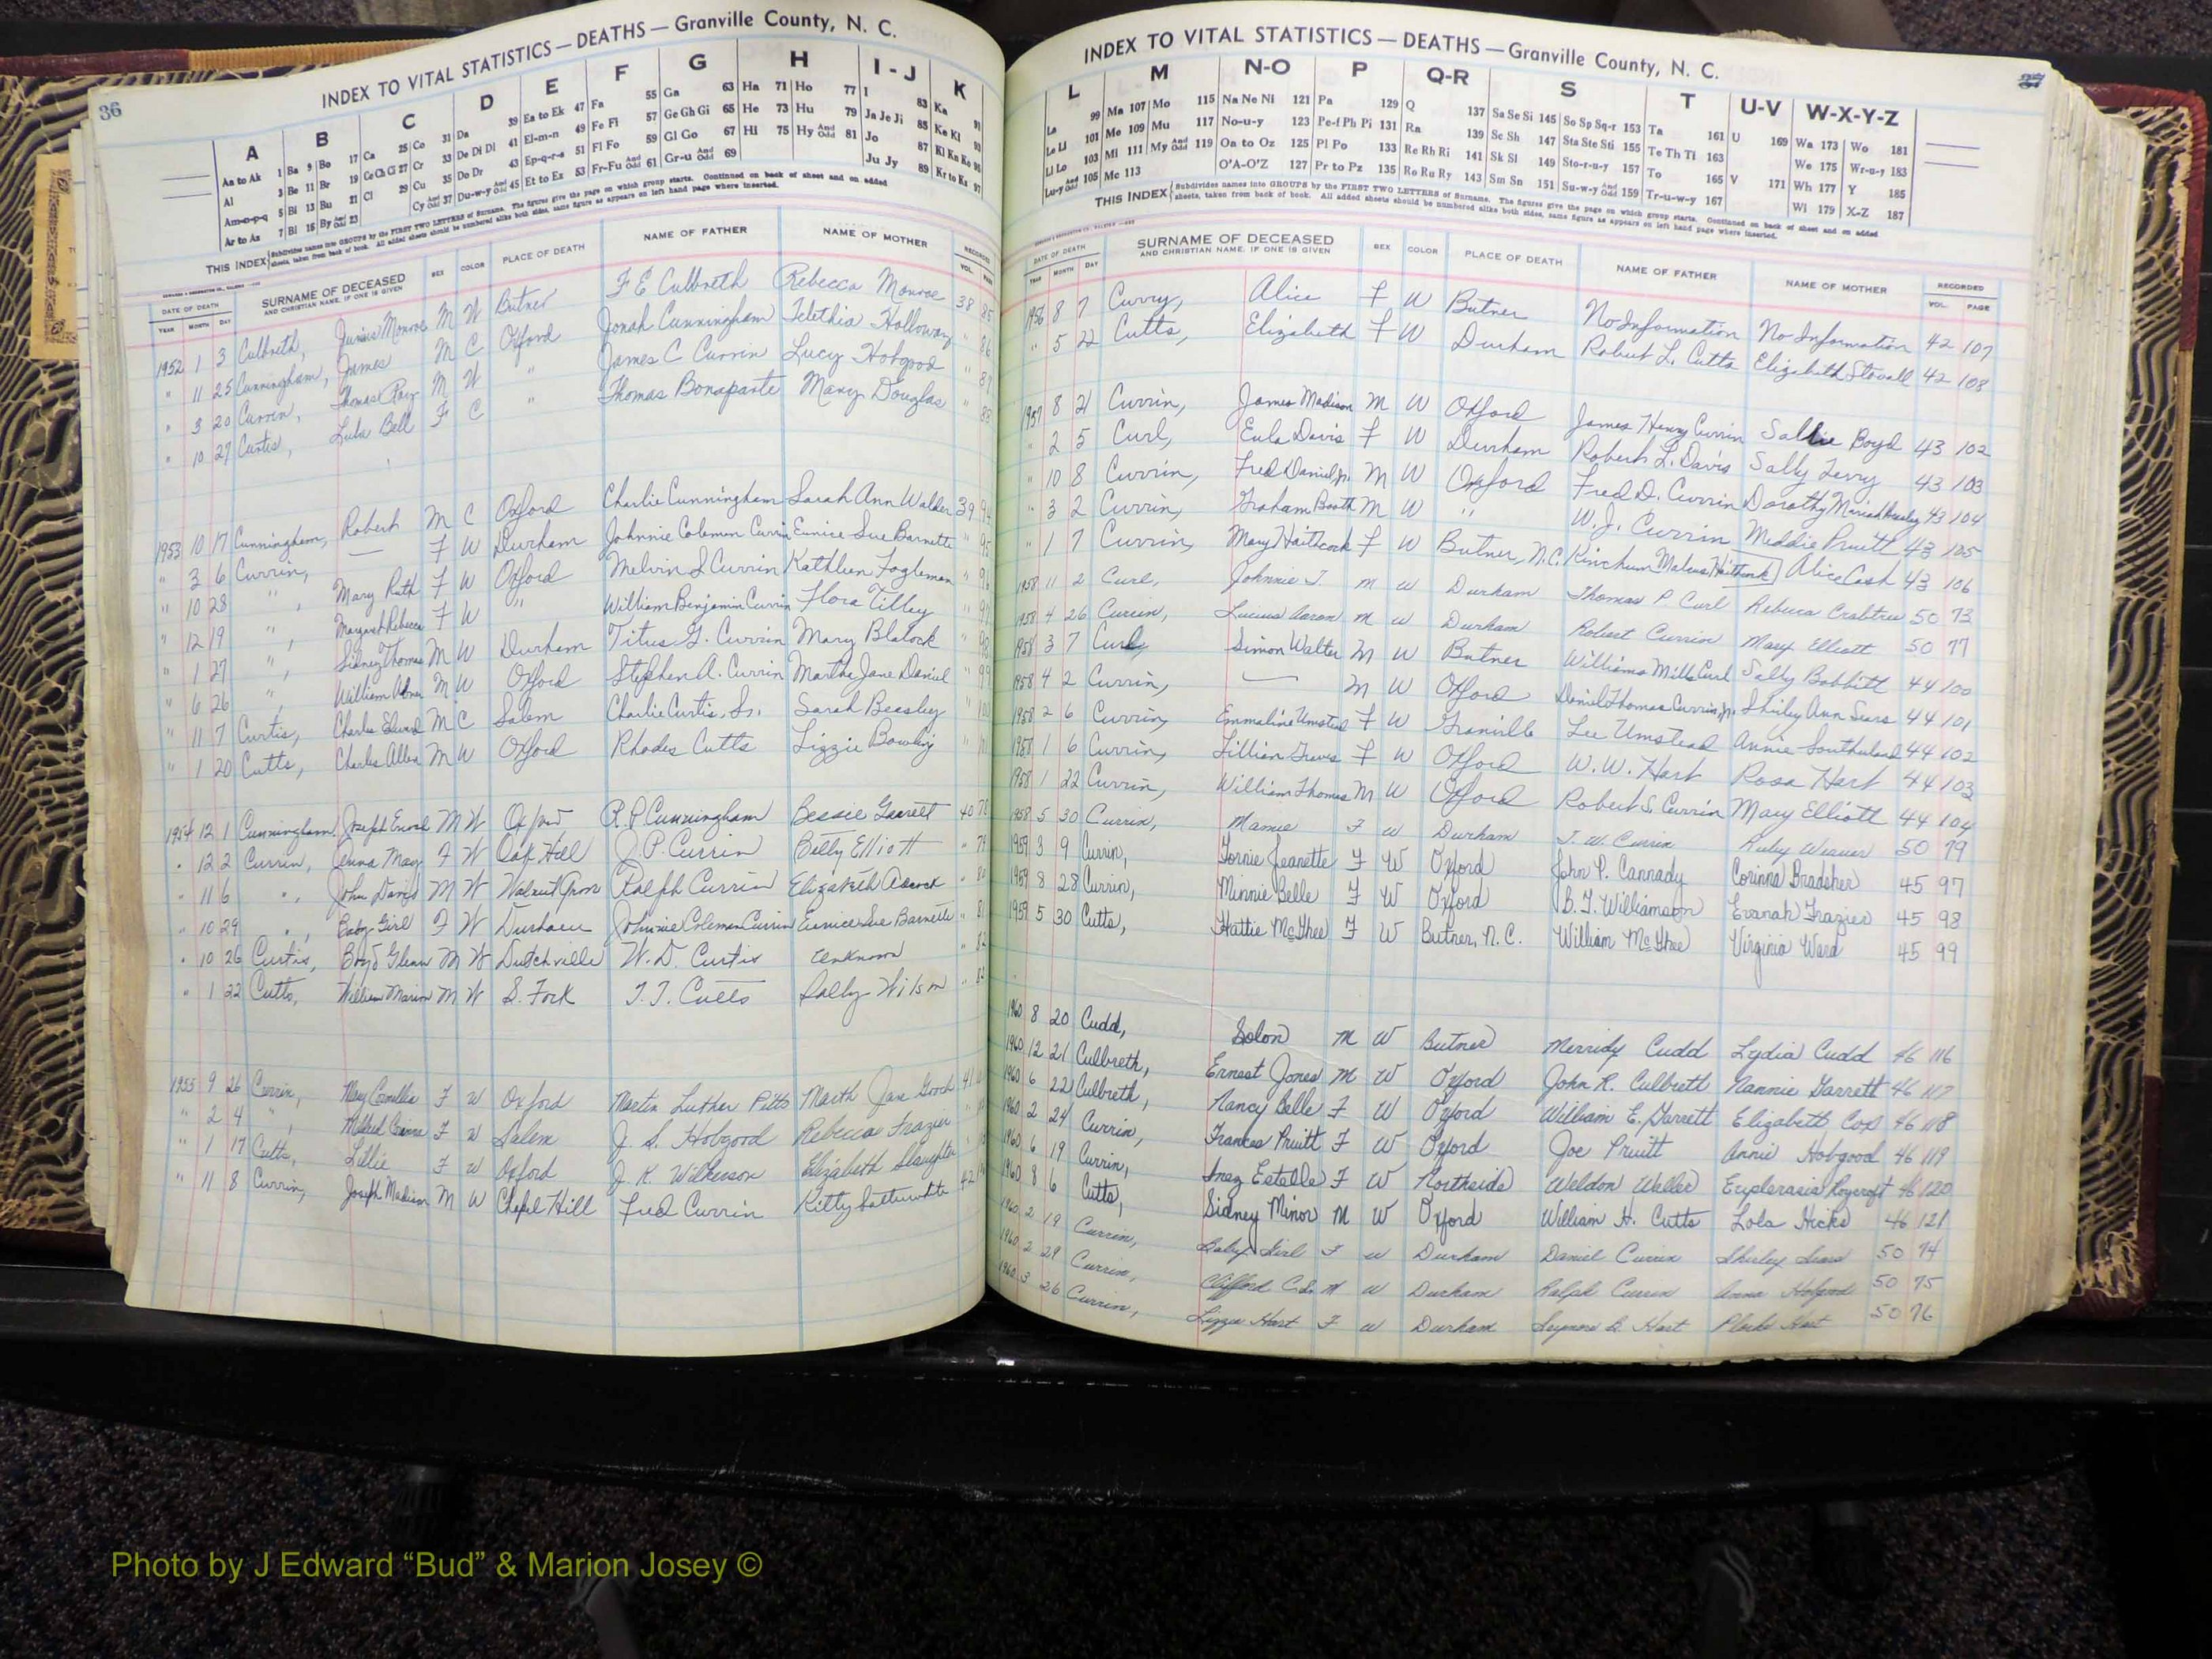 36
INDEX TO VITAL STATISTICS — DEATHS — Granville County, N. C.
A B C D E F G H I - J K
Aa to Ak 1 Ba 9 Bo 17 Ca 25 Co 31 Da 39 Ea to Ek 47 Fa 55 Ga 63 Ha 71 Ho 77 I 83 Ka 91
Al 3 Be 11 Br 19 Ce Ch Ci 27 Cr 33 De Di Dl 41 El-m-n 49 Fe Fi 57 Ge Gh Gi 65 He 73 Hu 79 Ja Je Ji 85 Ke Kl 93
Am-n-p-q 5 Bi 13 Bu 21 Cl 29 Cu 35 Do Dr 43 Ep-q-r-s 51 Fl Fo 59 Gl Go 67 Hi 75 Hy And Odd 81 Jo 87 Kl Kn Ko 95
Ar to Az 7 Bl 15 By And Odd 23 Cy And Odd 37 Du-w-y And Odd 45 Et to Ez 53 Fr-Fu And Odd 61 Gr-u And Odd 69 Ju Jy 89 Kr to Ku 97
THIS INDEX Subdivides names into GROUPS by the FIRST TWO LETTERS of Surname. The figures give the page on which group starts. Continued on back of sheet and on added
sheets, taken from back of book. All added sheets should be numbered alike both sides, same figure as appears on left hand page where inserted.
DATE OF DEATH SURNAME OF DECEASED SEX COLOR PLACE OF DEATH NAME OF FATHER NAME OF MOTHER RECORDED
YEAR MONTH DAY AND CHRISTIAN NAME, IF ONE IS GIVEN VOL. PAGE
1952 1 3 Culbreth, Junius Monroe M W Butner F E Culbreth Rebecca Monroe 38 85
" 11 25 Cunningham, James M C Oxford Jonah Cunningham Telethia Holloway " 86
" 3 20 Currin, Thomas Roy M W " James C Currin Lucy Hobgood " 87
" 10 27 Curtis, Lula Bell F C " Thomas Bonaparte Mary Douglas " 88
1953 10 17 Cunningham, Robert M C Oxford Charlie Cunningham Sarah Ann Walder 39 94
" 3 6 Currin, — F W Durham Johnnie Coleman Currin Eunice Sue Barnette " 95
" 10 28 " , Mary Ruth F W Oxford Melvin S Currin Kathleen Fogleman "
" 12 19 " , Margaret Rebecca F W " William Benjamin Currin Flora Tilley "
" 1 27 " , Sidney Thomas M W Durham Titus G. Currin Mary Blalock " 98
" 6 26 " , William Abner M W Oxford Stephen A. Currin Martha Jane Daniel " 99
" 11 7 Curtis, Charlie Edward M C Salem Charlie Curtis, Sr. Sarah Beasley " 100
" 1 20 Cutts, Charles Allen M W Oxford Rhodes Cutts Lizzie Bowling "
1954 12 1 Cunningham, Joseph M W Oxford R. P. Cunningham Bessie Garrett 40 78
" 12 2 Currin, Anna May F W Oak Hill J. P. Currin Betty Elliott " 79
" 11 6 " , John David M W Walnut Grove Ralph Currin Elizabeth Adcock " 80
" 10 29 " , Baby Girl F W Durham Johnnie Coleman Currin Eunice Sue Barnette " 81
" 10 26 Curtis, Boyd Glenn M W Dutchville W. D. Curtis Unknown " 82
" 1 22 Cutts, William Marion M W S. Fork T. T. Cutts Sally Wilson " 83
1955 9 26 Currin, Mary Cornelia F W Oxford Martin Luther Pitts Marth Jan Gooch 41
" 2 4 " , Mildred F W Salem J. S. Hobgood Rebecca Frazier
" 1 17 Cutts, Lillie F W Oxford J. K. Wilkerson Elizabeth Slaughter
" 11 8 Currin, Joseph Madison M W Chapel Hill Fred Currin Kitty Satterwhite 42
INDEX TO VITAL STATISTICS — DEATHS — Granville County, N. C. 37
L M N-O P Q-R S T U-V W-X-Y-Z
La 99 Ma 107 Mo 115 Na Ne Ni 121 Pa 129 Q 137 Sa Se Si 145 So Sp Sq-r 153 Ta 161 U 169 Wa 173 Wo 181
Le Ll 101 Me 109 Mu 117 No-u-y 123 Pe-f Ph Pi 131 Ra 139 Sc Sh 147 Sta Ste Sti 155 Te Th Ti 163 We 175 Wr-u-y 183
Li Lo 103 Mi 111 My And Odd 119 Oa to Oz 125 Pl Po 133 Re Rh Ri 141 Sk Sl 149 Sto-r-u-y 157 To 165 V 171 Wh 177 Y 185
Lu-y And Odd 105 Mc 113 O'A-O'Z 127 Pr to Pz 135 Ro Ru Ry 143 Sm Sn 151 Su-w-y And Odd 159 Tr-u-w-y 167 Wi 179 X-Z 187
THIS INDEX Subdivides names into GROUPS by the FIRST TWO LETTERS of Surname. The figures give the page on which group starts. Continued on back of sheet and on added
sheets, taken from back of book. All added sheets should be numbered alike both sides, same figure as appears on left hand page where inserted.
DATE OF DEATH SURNAME OF DECEASED SEX COLOR PLACE OF DEATH NAME OF FATHER NAME OF MOTHER RECORDED
YEAR MONTH DAY AND CHRISTIAN NAME, IF ONE IS GIVEN VOL. PAGE
1956 8 7 Curry, Alice F W Butner No Information No Information 42 107
" 5 22 Cutts, Elizabeth F W Durham Robert L. Cutts Elizabeth Stovall 42 108
1957 8 21 Currin, James Madison M W Oxford James Henry Currin Sallie Boyd 43 102
" 2 5 Curl, Eula Davis F W Durham Robert L. Davis Sally Terry 43 103
" 10 8 Currin, Fred Daniel, Jr. M W Oxford Fred D. Currin Dorothy Mariah 43 104
" 3 2 Currin, Graham Booth M W " W. J. Currin Meddie Pruitt 43 105
" 1 7 Currin, Mary Haithcock F W Butner, N.C. Kinchum Malcus Haithcock Alice Cash 43 106
1958 11 2 Curl, Johnnie T. M W Durham Thomas P Curl Rebecca Crabtree 50 73
1958 4 26 Currin, Lucius Aaron M W Durham Robert Currin Mary Elliott 50 77
1958 3 7 Curl, Simon Walter M W Butner Williams Mills Curl Sally Bobbitt 44 100
1958 4 2 Currin, — M W Oxford Daniel Thomas Currin, Jr. Shirley Ann Sears 44 101
1958 2 6 Currin, Emmaline Umstead F W Granville Lee Umstead Annie Southerland 44 102
1958 1 6 Currin, Lillian Graves F W Oxford W. W. Hart Rosa Hart 44 103
1958 1 22 Currin, William Thomas M W Oxford Robert S. Currin Mary Elliott 44 104
1958 5 30 Currin, Mamie F W Durham J. W. Currin Ruby Weaver 50 79
1959 3 9 Currin, Tornie Jeanette F W Oxford John P. Cannady Corinna Bradsher 45 97
1959 8 28 Currin, Minnie Belle F W Oxford B. T. Williamson Evanah Frazier 45 98
1959 5 30 Cutts, Hattie McGhee F W Butner, N. C. William McGhee Virginia Ward 45 99
1960 8 20 Cudd, Solon M W Butner Merridy Cudd Lydia Cudd 46 116
1960 12 21 Culbreth, Ernest Jones M W Oxford John R. Culbreth Nannie Garrett 46 117
1960 6 22 Culbreth, Nancy Belle F W Oxford William E. Garrett Elizabeth Cox 46 118
1960 2 24 Currin, Frances Pruitt F W Oxford Joe Pruitt Annie Hobgood 46 119
1960 6 19 Currin, Inez Estelle F W Northside Weldon Weller Euplerasia Roycroft 46 120
1960 8 6 Cutts, Sidney Minor M W Oxford William H. Cutts Lola Hicks 46 121
1960 2 19 Currin, Baby Girl F W Durham Daniel Currin Shirley Sears 50 74
1960 2 29 Currin, Clifford M W Durham Ralph Currin Anna 50 75
1960 3 26 Currin, Lizzie Hart F W Durham Hart Hart 50 76
Photo by J Edward “Bud” & Marion Josey ©